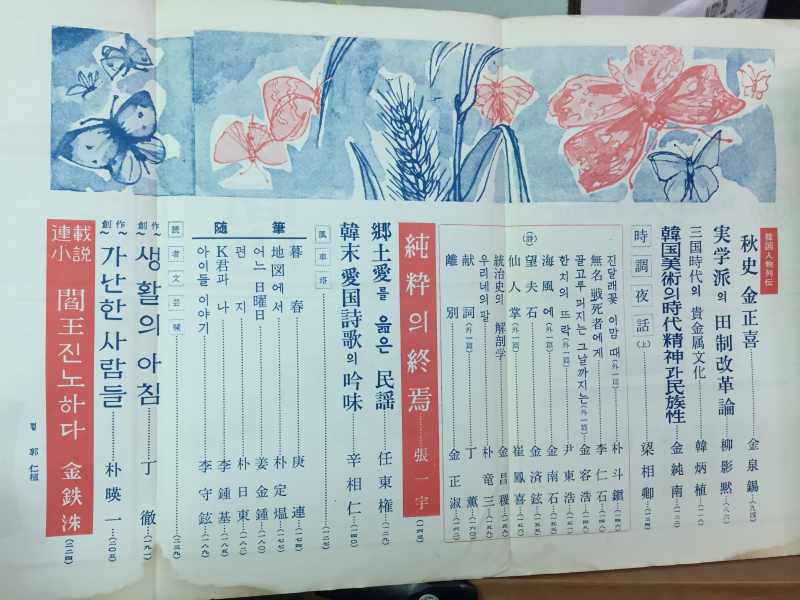 韓国人物列伝
秋史 金正喜 金泉錫 (九四)
実学派의 田制改革論 柳影黙 (八六)
三国時代의 貴金属文化 韓炳植 (一一八)
韓国美術의 時代精神과 民族性 金純南 (一二二)
時調夜話 (上) 梁相卿 (一三四)
(詩)
진달래꽃 이맘 때 (外一篇) 朴斗鎭
無名戦死者에게 李仁石
골고루 퍼지는 그날까지는 (外一篇) 金容浩
한치의 뜨락 (外一篇) 尹東浩
海風에 (外一篇) 金南石
望夫石 金済鉉
仙人掌 (外一篇) 崔鳳喜
統治史의 解剖学 金昌稷
우리네의 팔 朴竜三
献詞 (外一篇) 丁薫
離別 金正淑
純粋의 終焉 張一宇
郷土愛를 읊은 民謡 任東権 (一二九)
韓末 愛国詩歌의 吟味 辛相仁 (一四〇)
風車塔 (一二七)
随筆
暮春 庚連 (一七四)
地図에서 朴定熅 (一七七)
어느 日曜日 姜金鍾 (一八〇)
편지 朴日東 (一八二)
K君과 나 李鍾基 (一八五)
아이들 이야기 李守鉉 (一八九)
読者文芸欄 (二三九)
創作
생활의 아침 丁徹 (一九一)
創作
가난한 사람들 朴暎一 (二〇五)
連載小説
閻王진노하다 金鉄洙 (二二四)
컽 郭仁植